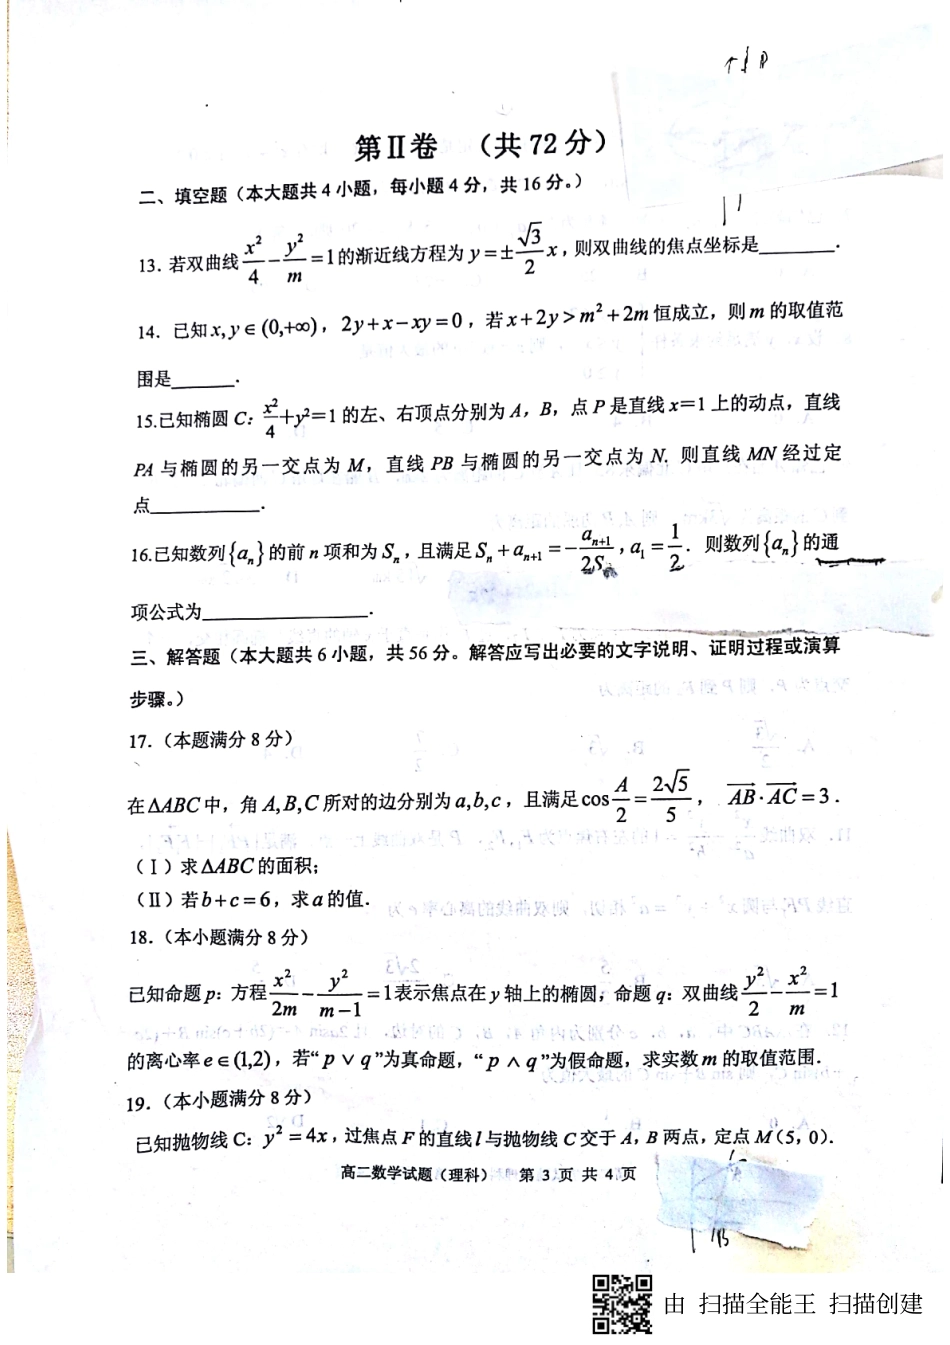 第Ⅱ卷 (共 72 分)
二、填空题（本大题共 4 小题，每小题 4 分，共 16 分。）
13. 若双曲线 x²/4 − y²/m = 1 的渐近线方程为 y = ± √3/2 x，则双曲线的焦点坐标是________.
14. 已知 x, y ∈ (0,+∞)，2y + x − xy = 0，若 x + 2y > m² + 2m 恒成立，则 m 的取值范
围是______.
15.已知椭圆 C: x²/4 + y² = 1 的左、右顶点分别为 A，B，点 P 是直线 x=1 上的动点，直线
PA 与椭圆的另一交点为 M，直线 PB 与椭圆的另一交点为 N. 则直线 MN 经过定
点__________.
16.已知数列{aₙ}的前 n 项和为 Sₙ，且满足 Sₙ + aₙ₊₁ = − aₙ₊₁/2S , a₁ = 1/2. 则数列{aₙ}的通
项公式为______________.
三、解答题（本大题共 6 小题，共 56 分。解答应写出必要的文字说明、证明过程或演算
步骤。）
17.（本题满分 8 分）
在△ABC 中，角 A,B,C 所对的边分别为 a,b,c，且满足 cos A/2 = 2√5/5，AB→·AC→ = 3.
(Ⅰ) 求△ABC 的面积;
(Ⅱ) 若 b + c = 6，求 a 的值.
18.（本小题满分 8 分）
已知命题 p: 方程 x²/2m − y²/(m−1) = 1 表示焦点在 y 轴上的椭圆; 命题 q: 双曲线 y²/2 − x²/m = 1
的离心率 e ∈ (1,2)，若“ p ∨ q ”为真命题，“ p ∧ q ”为假命题，求实数 m 的取值范围.
19.（本小题满分 8 分）
已知抛物线 C: y² = 4x，过焦点 F 的直线 l 与抛物线 C 交于 A，B 两点，定点 M(5，0).
高二数学试题（理科） 第 3 页 共 4 页
由 扫描全能王 扫描创建